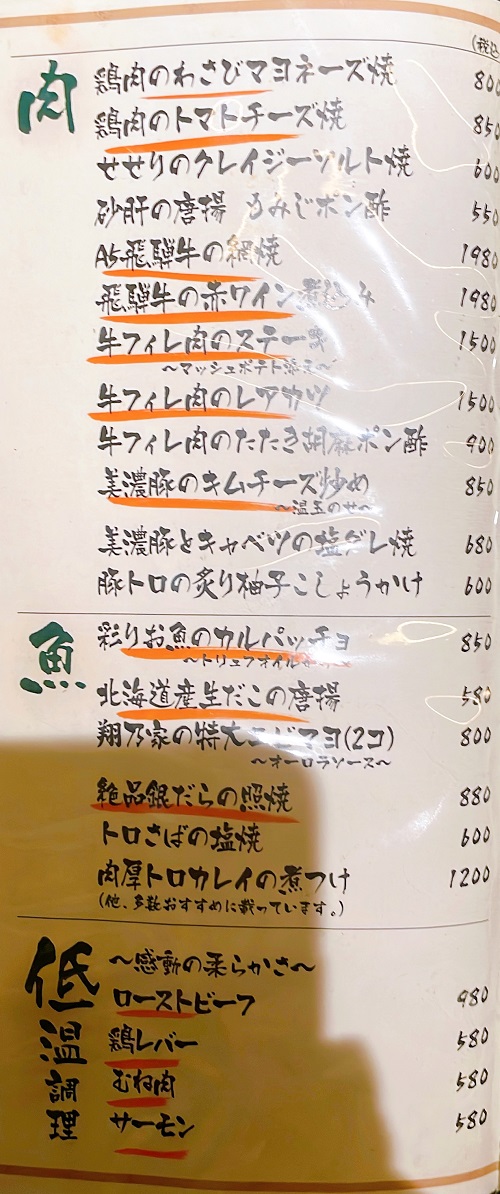 (税込
肉
鶏肉のわさびマヨネーズ焼 800
鶏肉のトマトチーズ焼 850
せせりのクレイジーソルト焼 600
砂肝の唐揚 もみじポン酢 550
A5飛騨牛の網焼 1980
飛騨牛の赤ワイン煮込み 1980
牛フィレ肉のステーキ 1500
〜マッシュポテト添え〜
牛フィレ肉のレアカツ 1500
牛フィレ肉のたたき胡麻ポン酢 900
美濃豚のキムチーズ炒め 850
〜温玉のせ〜
美濃豚とキャベツの塩ダレ焼 680
豚トロの炙り柚子こしょうかけ 600
魚
彩りお魚のカルパッチョ 850
〜トリュフオイル
北海道産生だこの唐揚 580
翔乃家の特大エビマヨ(2コ) 800
〜オーロラソース〜
絶品銀だらの照焼 880
トロさばの塩焼 600
肉厚トロカレイの煮つけ 1200
(他、多数おすすめに載っています。)
低温調理
〜感動の柔らかさ〜
ローストビーフ 980
鶏レバー 580
むね肉 580
サーモン 580